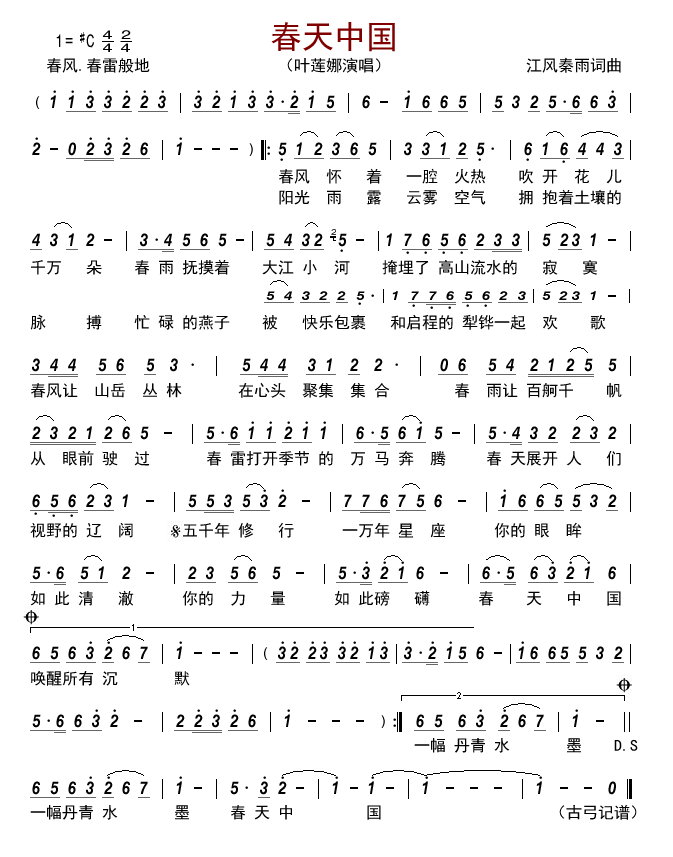 春天中国
1= #C 4/4 2/4
春风.春雷般地 （叶莲娜演唱） 江风秦雨词曲
( 1 1 3 3 2 2 3 | 3 2 1 3 3·2 1 5 | 6 - 1 6 6 5 | 5 3 2 5·6 6 3 |
2 - 0 2 3 2 6 | 1 - - - ) ‖: 5 1 2 3 6 5 | 3 3 1 2 5· | 6 1 6 4 4 3 |
春风 怀 着 一腔 火热 吹 开 花 儿
阳光 雨 露 云雾 空气 拥 抱着土壤的
4 3 1 2 - | 3·4 5 6 5 - | 5 4 3 2 2 5 - | 1 7 6 5 6 2 3 3 | 5 2 3 1 - |
千万 朵 春 雨 抚摸着 大江 小 河 掩埋了 高山流水的 寂 寞
5 4 3 2 2 5· | 1 7 7 6 5 6 2 3 | 5 2 3 1 - |
脉 搏 忙 碌 的燕子 被 快乐包裹 和启程的 犁铧一起 欢 歌
3 4 4 5 6 5 3 · | 5 4 4 3 1 2 2 · | 0 6 5 4 2 1 2 5 5 |
春风让 山岳 丛 林 在心头 聚集 集 合 春 雨让 百舸千 帆
2 3 2 1 2 6 5 - | 5·6 1 1 2 1 1 | 6·5 6 1 5 - | 5·4 3 2 2 3 2 |
从 眼前 驶 过 春 雷打开季节 的 万 马 奔 腾 春 天展开 人 们
6 5 6 2 3 1 - | 5 5 3 5 3 2 - | 7 7 6 7 5 6 - | 1 6 6 5 5 3 2 |
视野的 辽 阔 𝄋五千年 修 行 一万年 星 座 你的 眼 眸
5·6 5 1 2 - | 2 3 5 6 5 - | 5·3 2 1 6 - | 6·5 6 3 2 1 6 |
如 此 清 澈 你的 力 量 如 此磅 礴 春 天 中 国
𝄌 1
6 5 6 3 2 6 7 | 1 - - - | ( 3 2 2 3 3 2 1 3 | 3·2 1 5 6 - | 1 6 6 5 5 3 2 |
唤醒所有 沉 默
2 𝄌
5·6 6 3 2 - | 2 2 3 2 6 | 1 - - - ) :‖ 6 5 6 3 2 6 7 | 1 - ‖
一幅 丹青 水 墨 D.S
6 5 6 3 2 6 7 | 1 - - | 5·3 2 - | 1 - 1 | 1 - - - | 1 - - 0 ‖
一幅丹青 水 墨 春 天 中 国 （古弓记谱）